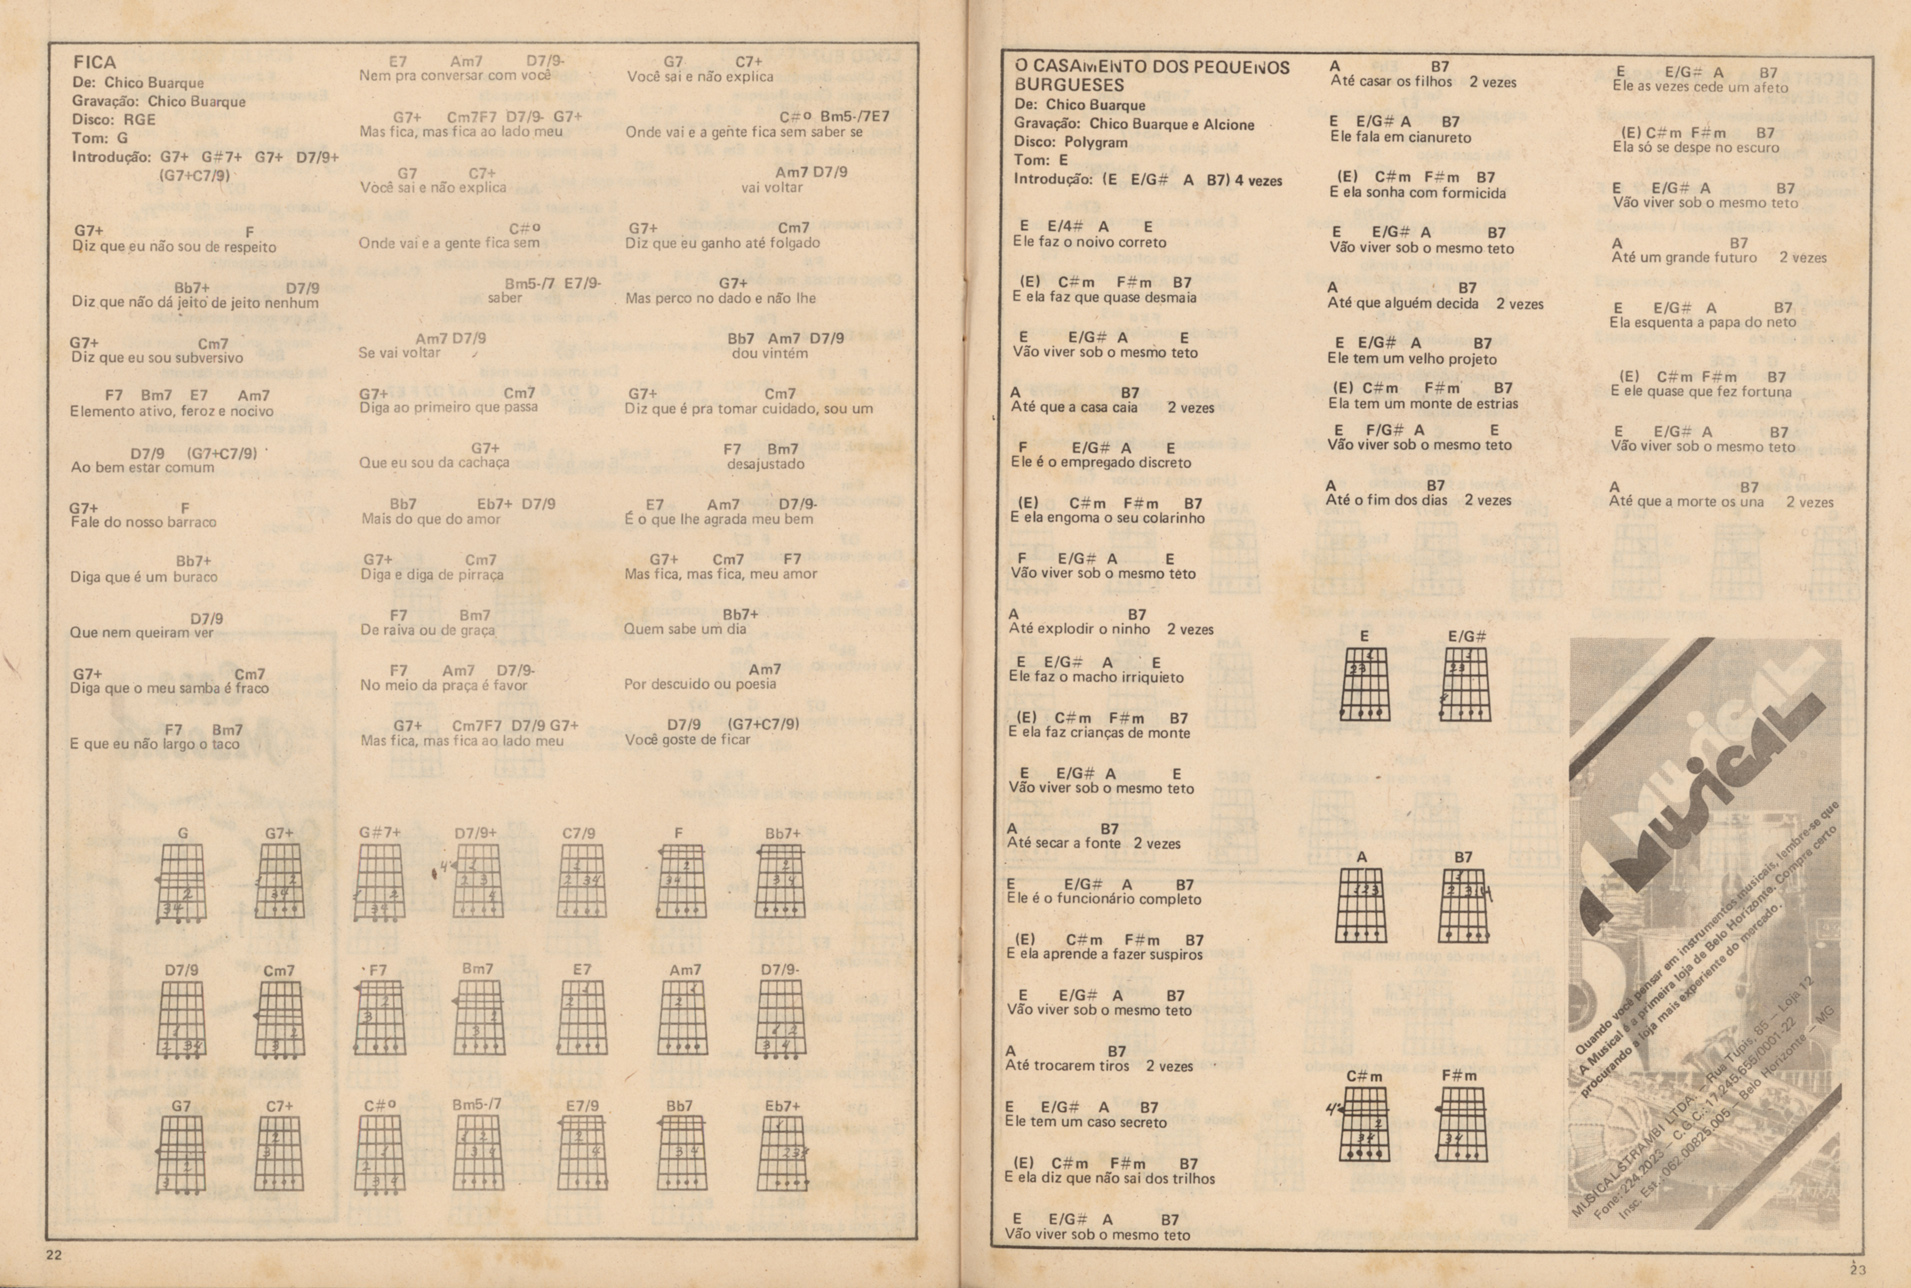 FICA
De: Chico Buarque
Gravação: Chico Buarque
Disco: RGE
Tom: G
Introdução: G7+ G#7+ G7+ D7/9+
(G7+C7/9)
G7+ F
Diz que eu não sou de respeito
Bb7+ D7/9
Diz que não dá jeito de jeito nenhum
G7+ Cm7
Diz que eu sou subversivo
F7 Bm7 E7 Am7
Elemento ativo, feroz e nocivo
D7/9 (G7+C7/9)
Ao bem estar comum
G7+ F
Fale do nosso barraco
Bb7+
Diga que é um buraco
D7/9
Que nem queiram ver
G7+ Cm7
Diga que o meu samba é fraco
F7 Bm7
E que eu não largo o taco
E7 Am7 D7/9-
Nem pra conversar com você
G7+ Cm7F7 D7/9- G7+
Mas fica, mas fica ao lado meu
G7 C7+
Você sai e não explica
C#º
Onde vai e a gente fica sem
Bm5-/7 E7/9-
saber
Am7 D7/9
Se vai voltar
G7+ Cm7
Diga ao primeiro que passa
G7+
Que eu sou da cachaça
Bb7 Eb7+ D7/9
Mais do que do amor
G7+ Cm7
Diga e diga de pirraça
F7 Bm7
De raiva ou de graça
F7 Am7 D7/9-
No meio da praça é favor
G7+ Cm7F7 D7/9 G7+
Mas fica, mas fica ao lado meu
G7 C7+
Você sai e não explica
C#º Bm5-/7E7
Onde vai e a gente fica sem saber se
Am7 D7/9
vai voltar
G7+ Cm7
Diz que eu ganho até folgado
G7+
Mas perco no dado e não lhe
Bb7 Am7 D7/9
dou vintém
G7+ Cm7
Diz que é pra tomar cuidado, sou um
F7 Bm7
desajustado
E7 Am7 D7/9-
É o que lhe agrada meu bem
G7+ Cm7 F7
Mas fica, mas fica, meu amor
Bb7+
Quem sabe um dia
Am7
Por descuido ou poesia
D7/9 (G7+C7/9)
Você goste de ficar
G G7+ G#7+ D7/9+ C7/9 F Bb7+
4ª
D7/9 Cm7 F7 Bm7 E7 Am7 D7/9-
G7 C7+ C#º Bm5-/7 E7/9 Bb7 Eb7+
22
O CASAMENTO DOS PEQUENOS
BURGUESES
De: Chico Buarque
Gravação: Chico Buarque e Alcione
Disco: Polygram
Tom: E
Introdução: (E E/G# A B7) 4 vezes
E E/4# A E
Ele faz o noivo correto
(E) C#m F#m B7
E ela faz que quase desmaia
E E/G# A E
Vão viver sob o mesmo teto
A B7
Até que a casa caia 2 vezes
F E/G# A E
Ele é o empregado discreto
(E) C#m F#m B7
E ela engoma o seu colarinho
F E/G# A E
Vão viver sob o mesmo teto
A B7
Até explodir o ninho 2 vezes
E E/G# A E
Ele faz o macho irriquieto
(E) C#m F#m B7
E ela faz crianças de monte
E E/G# A E
Vão viver sob o mesmo teto
A B7
Até secar a fonte 2 vezes
E E/G# A B7
Ele é o funcionário completo
(E) C#m F#m B7
E ela aprende a fazer suspiros
E E/G# A B7
Vão viver sob o mesmo teto
A B7
Até trocarem tiros 2 vezes
E E/G# A B7
Ele tem um caso secreto
(E) C#m F#m B7
E ela diz que não sai dos trilhos
E E/G# A B7
Vão viver sob o mesmo teto
A B7
Até casar os filhos 2 vezes
E E/G# A B7
Ele fala em cianureto
(E) C#m F#m B7
E ela sonha com formicida
E E/G# A B7
Vão viver sob o mesmo teto
A B7
Até que alguém decida 2 vezes
E E/G# A B7
Ele tem um velho projeto
(E) C#m F#m B7
Ela tem um monte de estrias
E F/G# A E
Vão viver sob o mesmo teto
A B7
Até o fim dos dias 2 vezes
E E/G# A B7
Ele as vezes cede um afeto
(E) C#m F#m B7
Ela só se despe no escuro
E E/G# A B7
Vão viver sob o mesmo teto
A B7
Até um grande futuro 2 vezes
E E/G# A B7
Ela esquenta a papa do neto
(E) C#m F#m B7
E ele quase que fez fortuna
E E/G# A B7
Vão viver sob o mesmo teto
A B7
Até que a morte os una 2 vezes
E E/G#
A B7
C#m F#m
4ª
A MUSICAL
Quando você pensar em instrumentos musicais, lembre-se que
A Musical é a primeira loja de Belo Horizonte. Compra certo
procurando a loja mais experiente do mercado.
MUSICAL STRAMBI LTDA. – Rua Tupis, 85 – Loja 12
Fone: 224.2023 – C.G.C.: 17.245.655/0001-22
Insc. Est.: 062.00825.005 – Belo Horizonte – MG
23